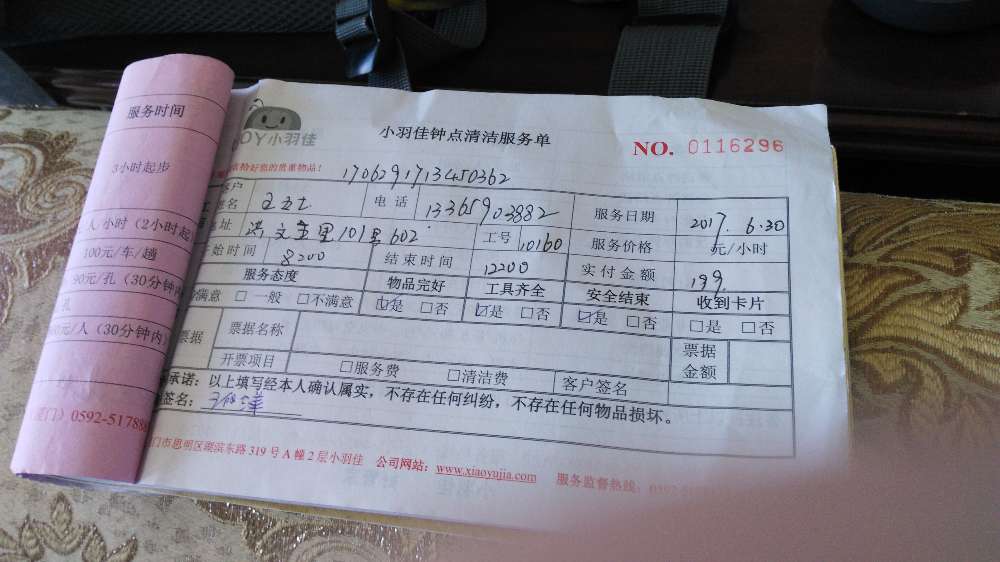 服务时间
3小时起步
人/小时(2小时起
100元/车/趟
90元/孔(30分钟内
孔
元/人(30分钟内)
门)0592-51788
OY小羽佳
小羽佳钟点清洁服务单
NO. 0116296
特好您的贵重物品!
1706291713450362
客户
姓名 王女士 电话 13365903882 服务日期 2017.6.30
地址 洪文五里101号602 工号 10160 服务价格 元/小时
始时间 8:00 结束时间 12:00 实付金额 199
服务态度 物品完好 工具齐全 安全结束 收到卡片
满意 □一般 □不满意 ☑是 □否 ☑是 □否 ☑是 □否 □是 □否
票据 票据名称 票据
金额
开票项目 □服务费 □清洁费 客户签名
承诺:以上填写经本人确认属实,不存在任何纠纷,不存在任何物品损坏。
签名:
门市思明区湖滨东路319号A幢2层小羽佳 公司网站:www.xiaoyujia.com 服务监督热线: